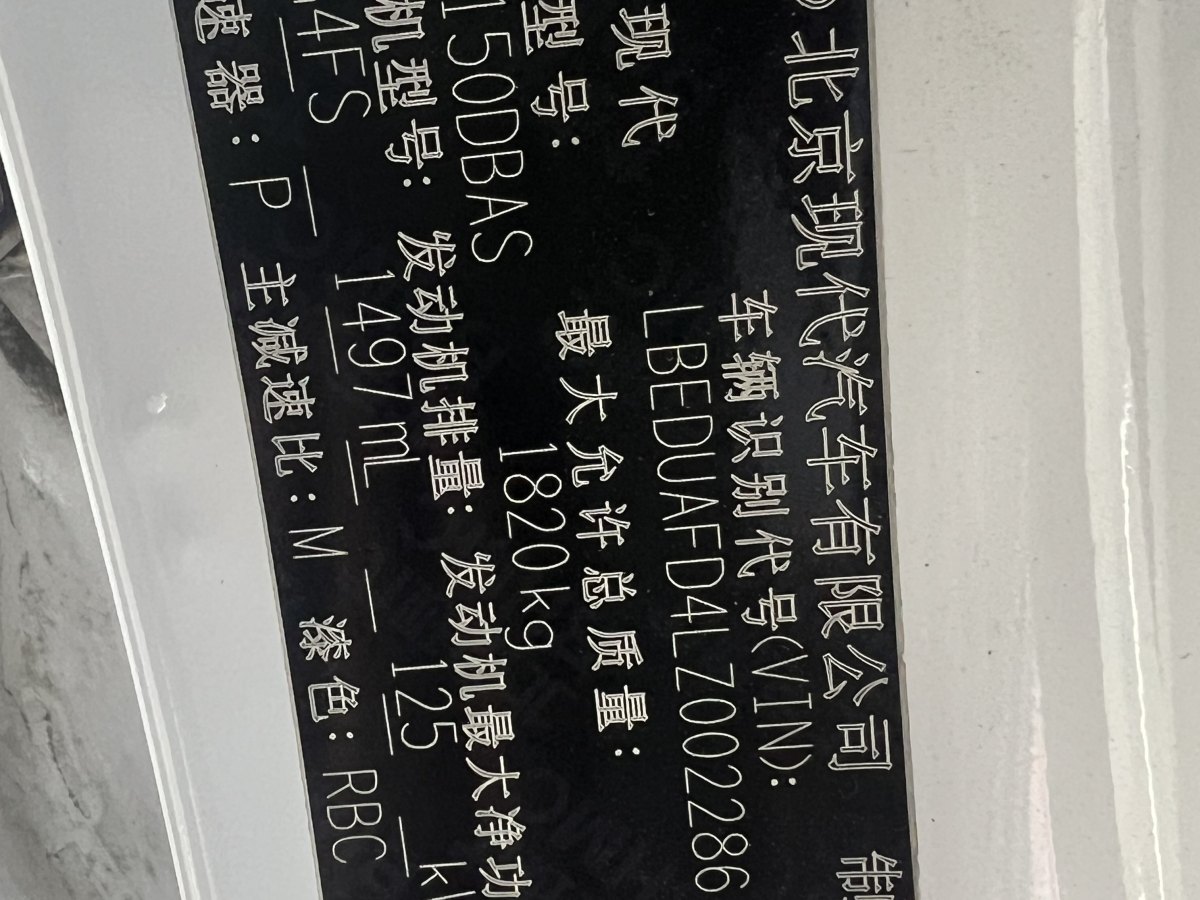 北京现代汽车有限公司
车辆识别代号(VIN):
现代 LBEDUAFD4LZ002286
型号: 最大允许总质量:
150DBAS 1820kg
机型号: 发动机排量: 发动机最大净功
4FS 1497mL 125
速器: P 主减速比: M 漆色: RBC